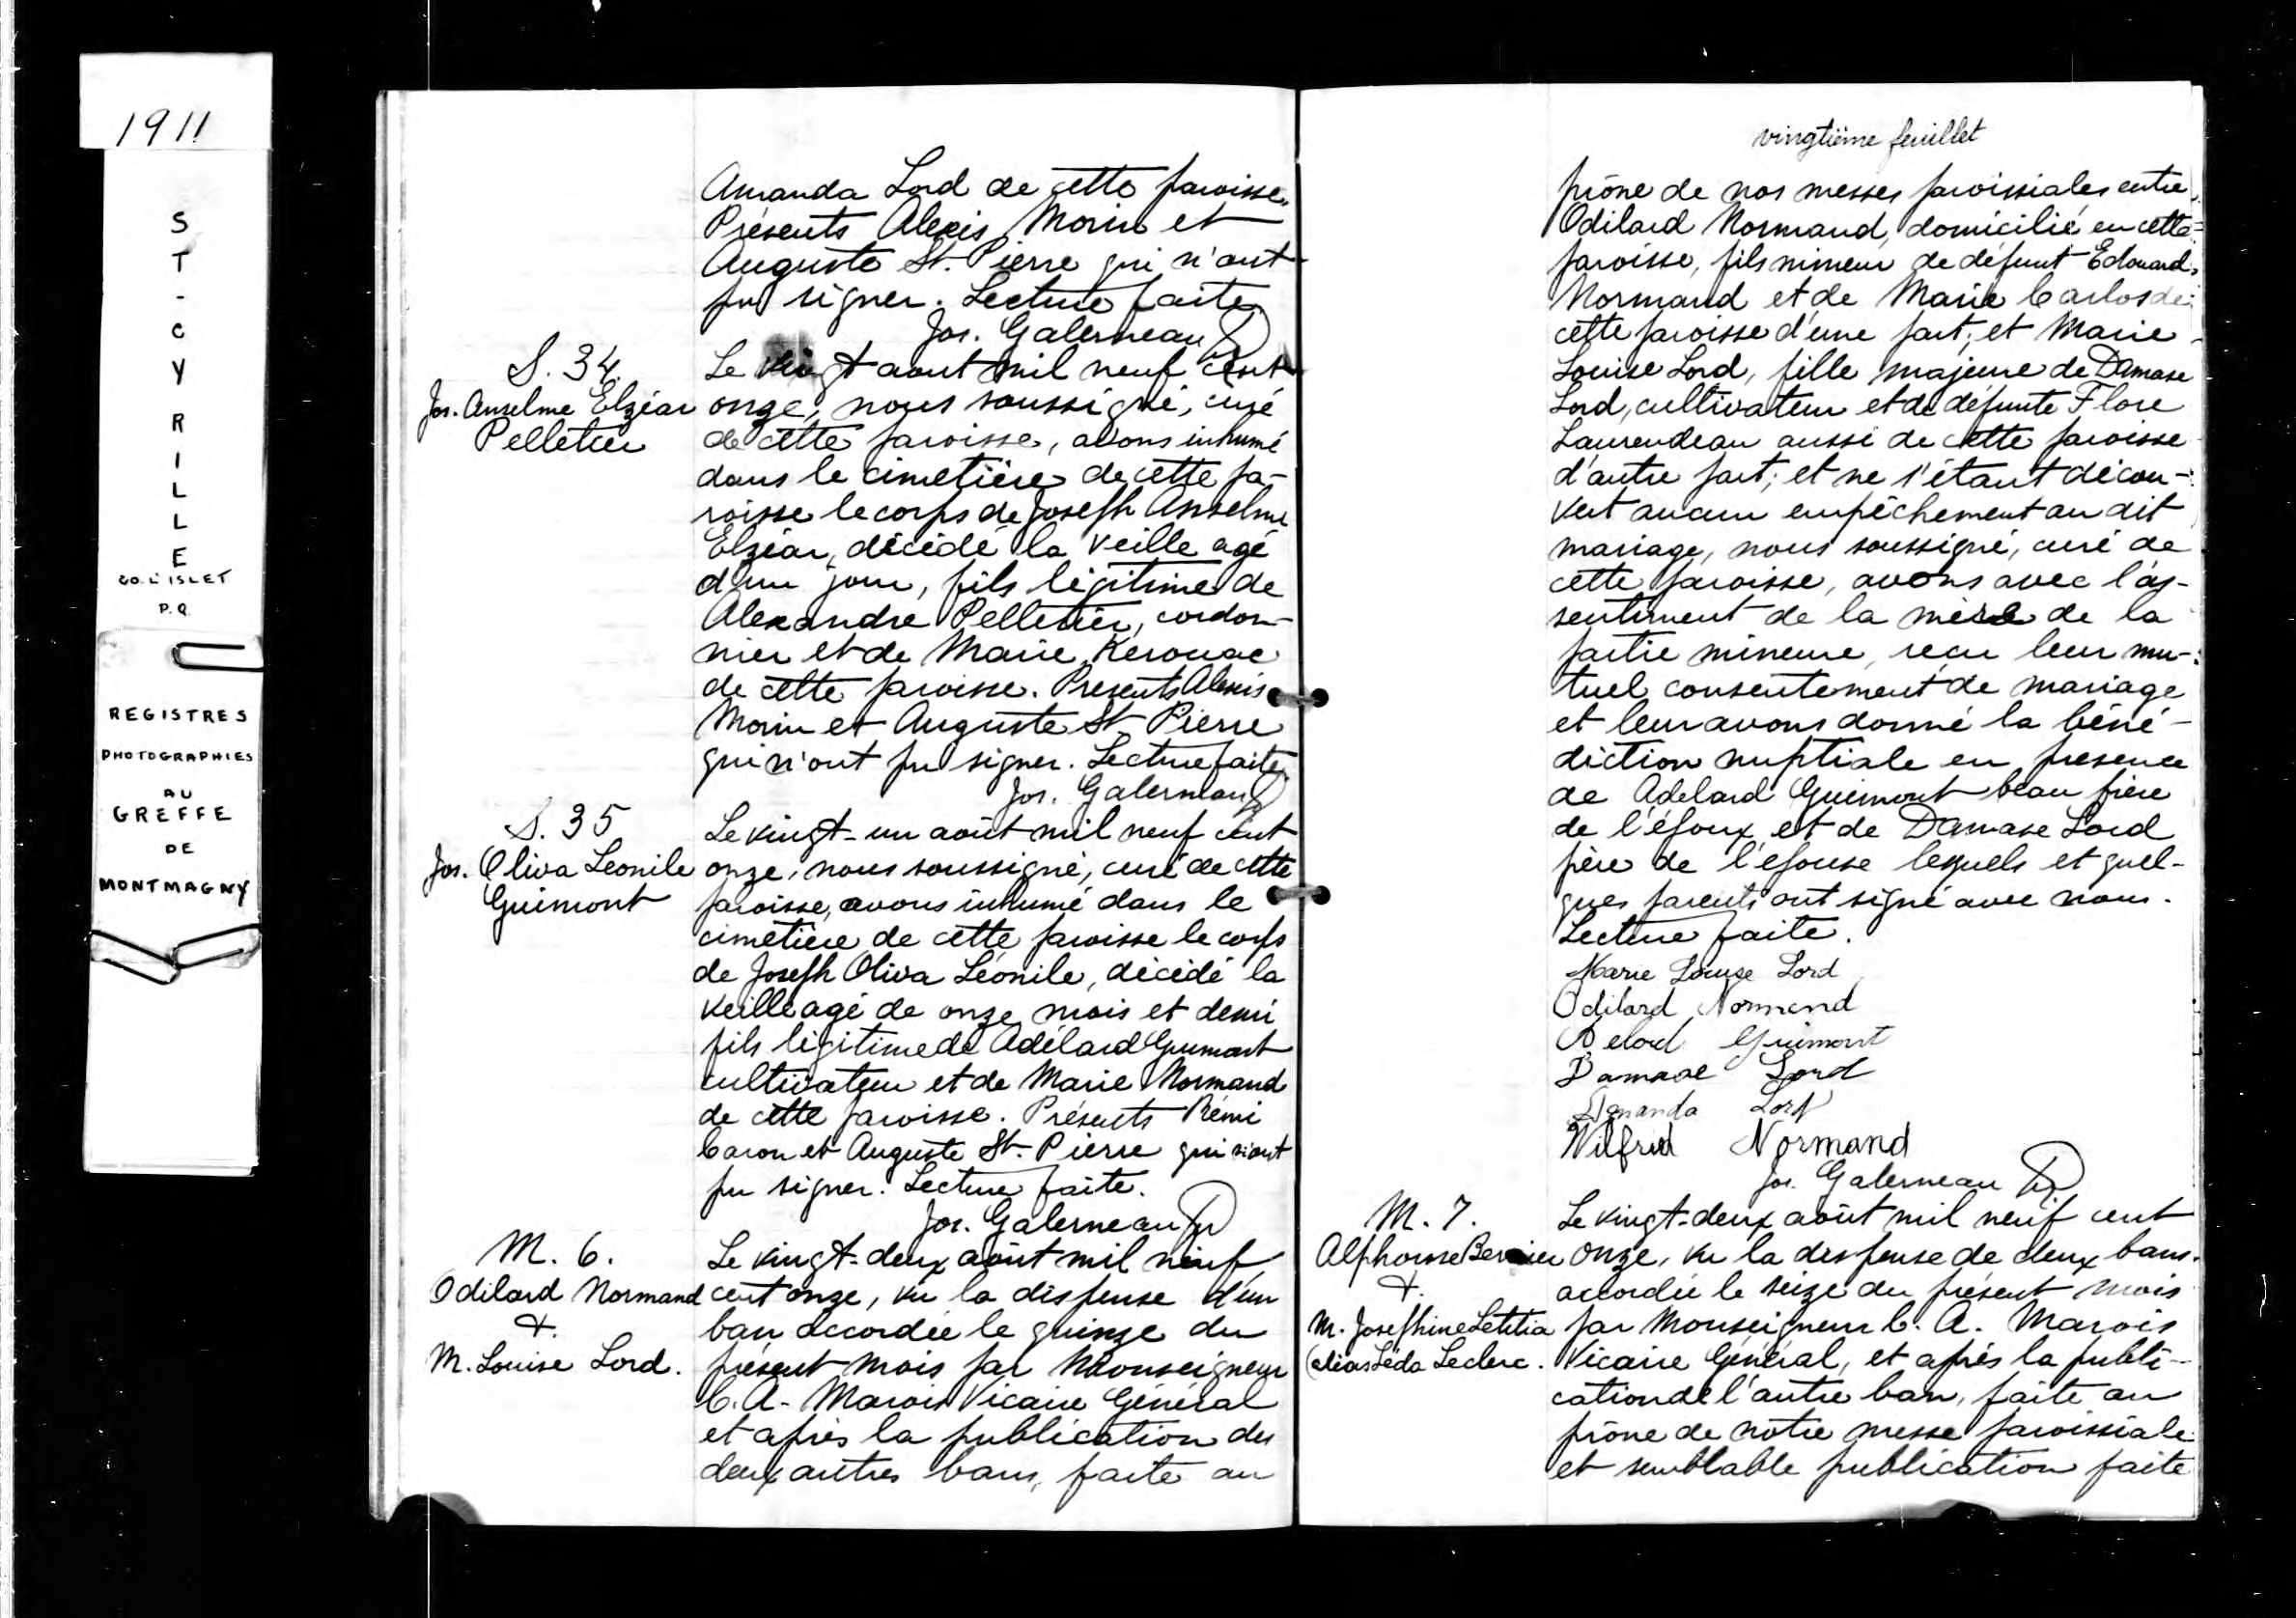 1911
S
T
-
C
Y
R
I
L
L
E
CO. L'ISLET
P.Q.
REGISTRES
PHOTOGRAPHIES
AU
GREFFE
DE
MONTMAGNY
Amanda Lord de cette paroisse.
Présents Alexis Morin et
Auguste St. Pierre qui n'ont
pu signer. Lecture faite.
Jos. Galerneau Ptr
S. 34.
Jos. Anselme Elzéar
Pelletier
Le vingt aout mil neuf cent
onze, nous soussigné, curé
de cette paroisse, avons inhumé
dans le cimetière de cette pa-
roisse le corps de Joseph Anselme
Elzéar, décédé la veille agé
d'un jour, fils légitime de
Alexandre Pelletier, cordon-
nier et de Marie Kerouac
de cette paroisse. Présents Alexis
Morin et Auguste St. Pierre
qui n'ont pu signer. Lecture faite.
Jos. Galerneau Ptr
S. 35
Jos. Oliva Leonile
Guimont
Le vingt-un août mil neuf cent
onze, nous soussigné, curé de cette
paroisse, avons inhumé dans le
cimetière de cette paroisse le corps
de Joseph Oliva Léonile, décédé la
veille agé de onze mois et demi
fils légitime de Adélard Guimont
cultivateur et de Marie Normand
de cette paroisse. Présents Rémi
Caron et Auguste St. Pierre qui n'ont
pu signer. Lecture faite.
Jos. Galerneau Ptr
M. 6.
Odilard Normand
&.
M. Louise Lord.
Le vingt-deux août mil neuf
cent onze, vu la dispense d'un
ban accordée le quinze du
présent mois par Monseigneur
C. A. Marois Vicaire Général
et après la publication des
deux autres bans, faite au
vingtième feuillet
prône de nos messes paroissiales entre
Odilard Normand, domicilié en cette
paroisse, fils mineur de défunt Edouard
Normand et de Marie Carlos de
cette paroisse d'une part; et Marie
Louise Lord, fille majeure de Damase
Lord, cultivateur et de défunte Flore
Laurendeau aussi de cette paroisse
d'autre part; et ne s'étant décou-
vert aucun empêchement au dit
mariage, nous soussigné, curé de
cette paroisse, avons avec l'as-
sentiment de la mère de la
partie mineure, reçu leur mu-
tuel consentement de mariage
et leur avons donné la béné-
diction nuptiale en presence
de Adelard Guimont beau frère
de l'époux, et de Damase Lord
père de l'épouse lesquels et quel-
ques parents ont signé avec nous.
Lecture faite.
Marie Louise Lord
Odilard Normand
Adelard Guimont
Damase Lord
Amanda Lord
Wilfrid Normand
Jos. Galerneau Ptr.
M. 7.
Alphonse Bernier
&.
M. Josephine Letitia
(alias Léda Leclerc.
Le vingt-deux août mil neuf cent
onze, vu la dispense de deux bans
accordée le seize du présent mois
par Monseigneur C. A. Marois
Vicaire Général, et après la publi-
cation de l'autre ban, faite au
prône de notre messe paroissiale
et semblable publication faite